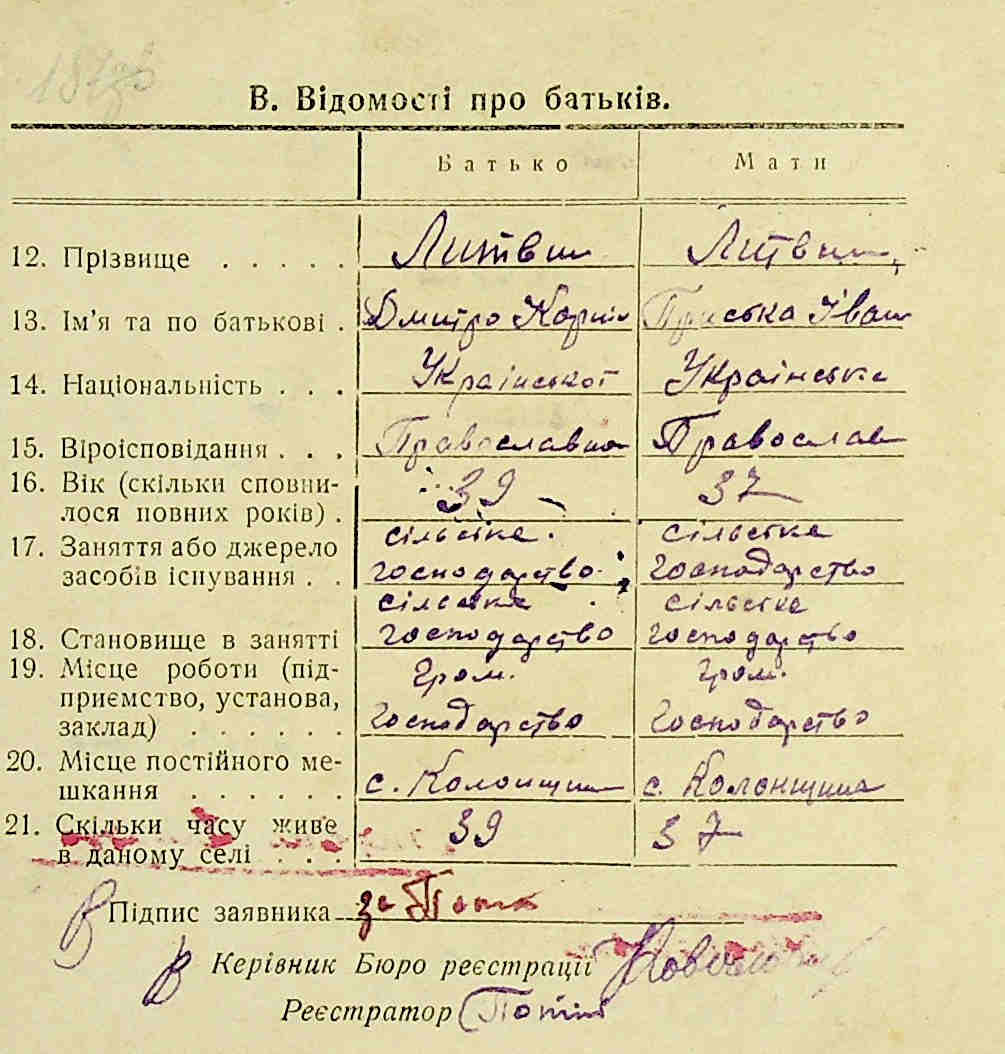 В. Відомості про батьків.
Батько Мати
12. Прізвище . . . . . Литвин Литвин
13. Ім'я та по батькові . Дмитро Корній Приська Іван
14. Національність . . . Української Українська
15. Віроісповідання . . . Православна Православ
16. Вік (скільки сповни-
лося повних років) . 39 37
17. Заняття або джерело сільське сільське
засобів існування . . господарство господарство
сільське сільске
18. Становище в занятті господарство господарство
19. Місце роботи (під- Гром. Гром.
приємство, установа,
заклад) . . . . . . господарство господарство
20. Місце постійного ме-
шкання . . . . . . с. Колонщина с. Колонщина
21. Скільки часу живе 39 37
в даному селі . . .
Підпис заявника за
Керівник Бюро реєстрації
Реєстратор